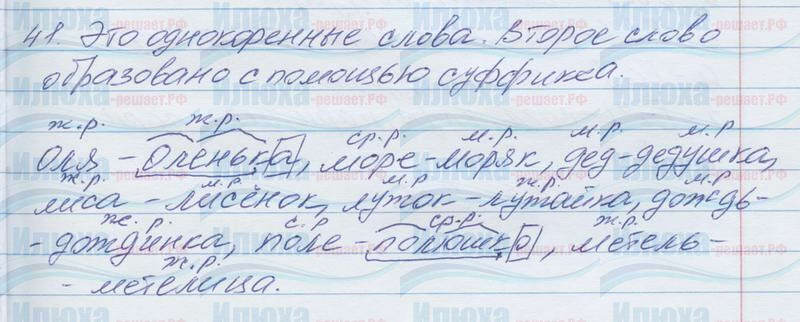 41. Это однокоренные слова. Второе слово
образовано с помощью суффикса.
ж.р. ж.р. ср.р. м.р. м.р. м.р
Оля - Оленька, море-моряк, дед-дедушка,
ж.р. м.р. м.р ж.р. м.р
лиса - лисёнок, лужок - лужайка, дождь-
ж.р. с.р ср.р. ж.р.
- дождинка, поле - полюшко, метель -
ж.р.
- метелица.